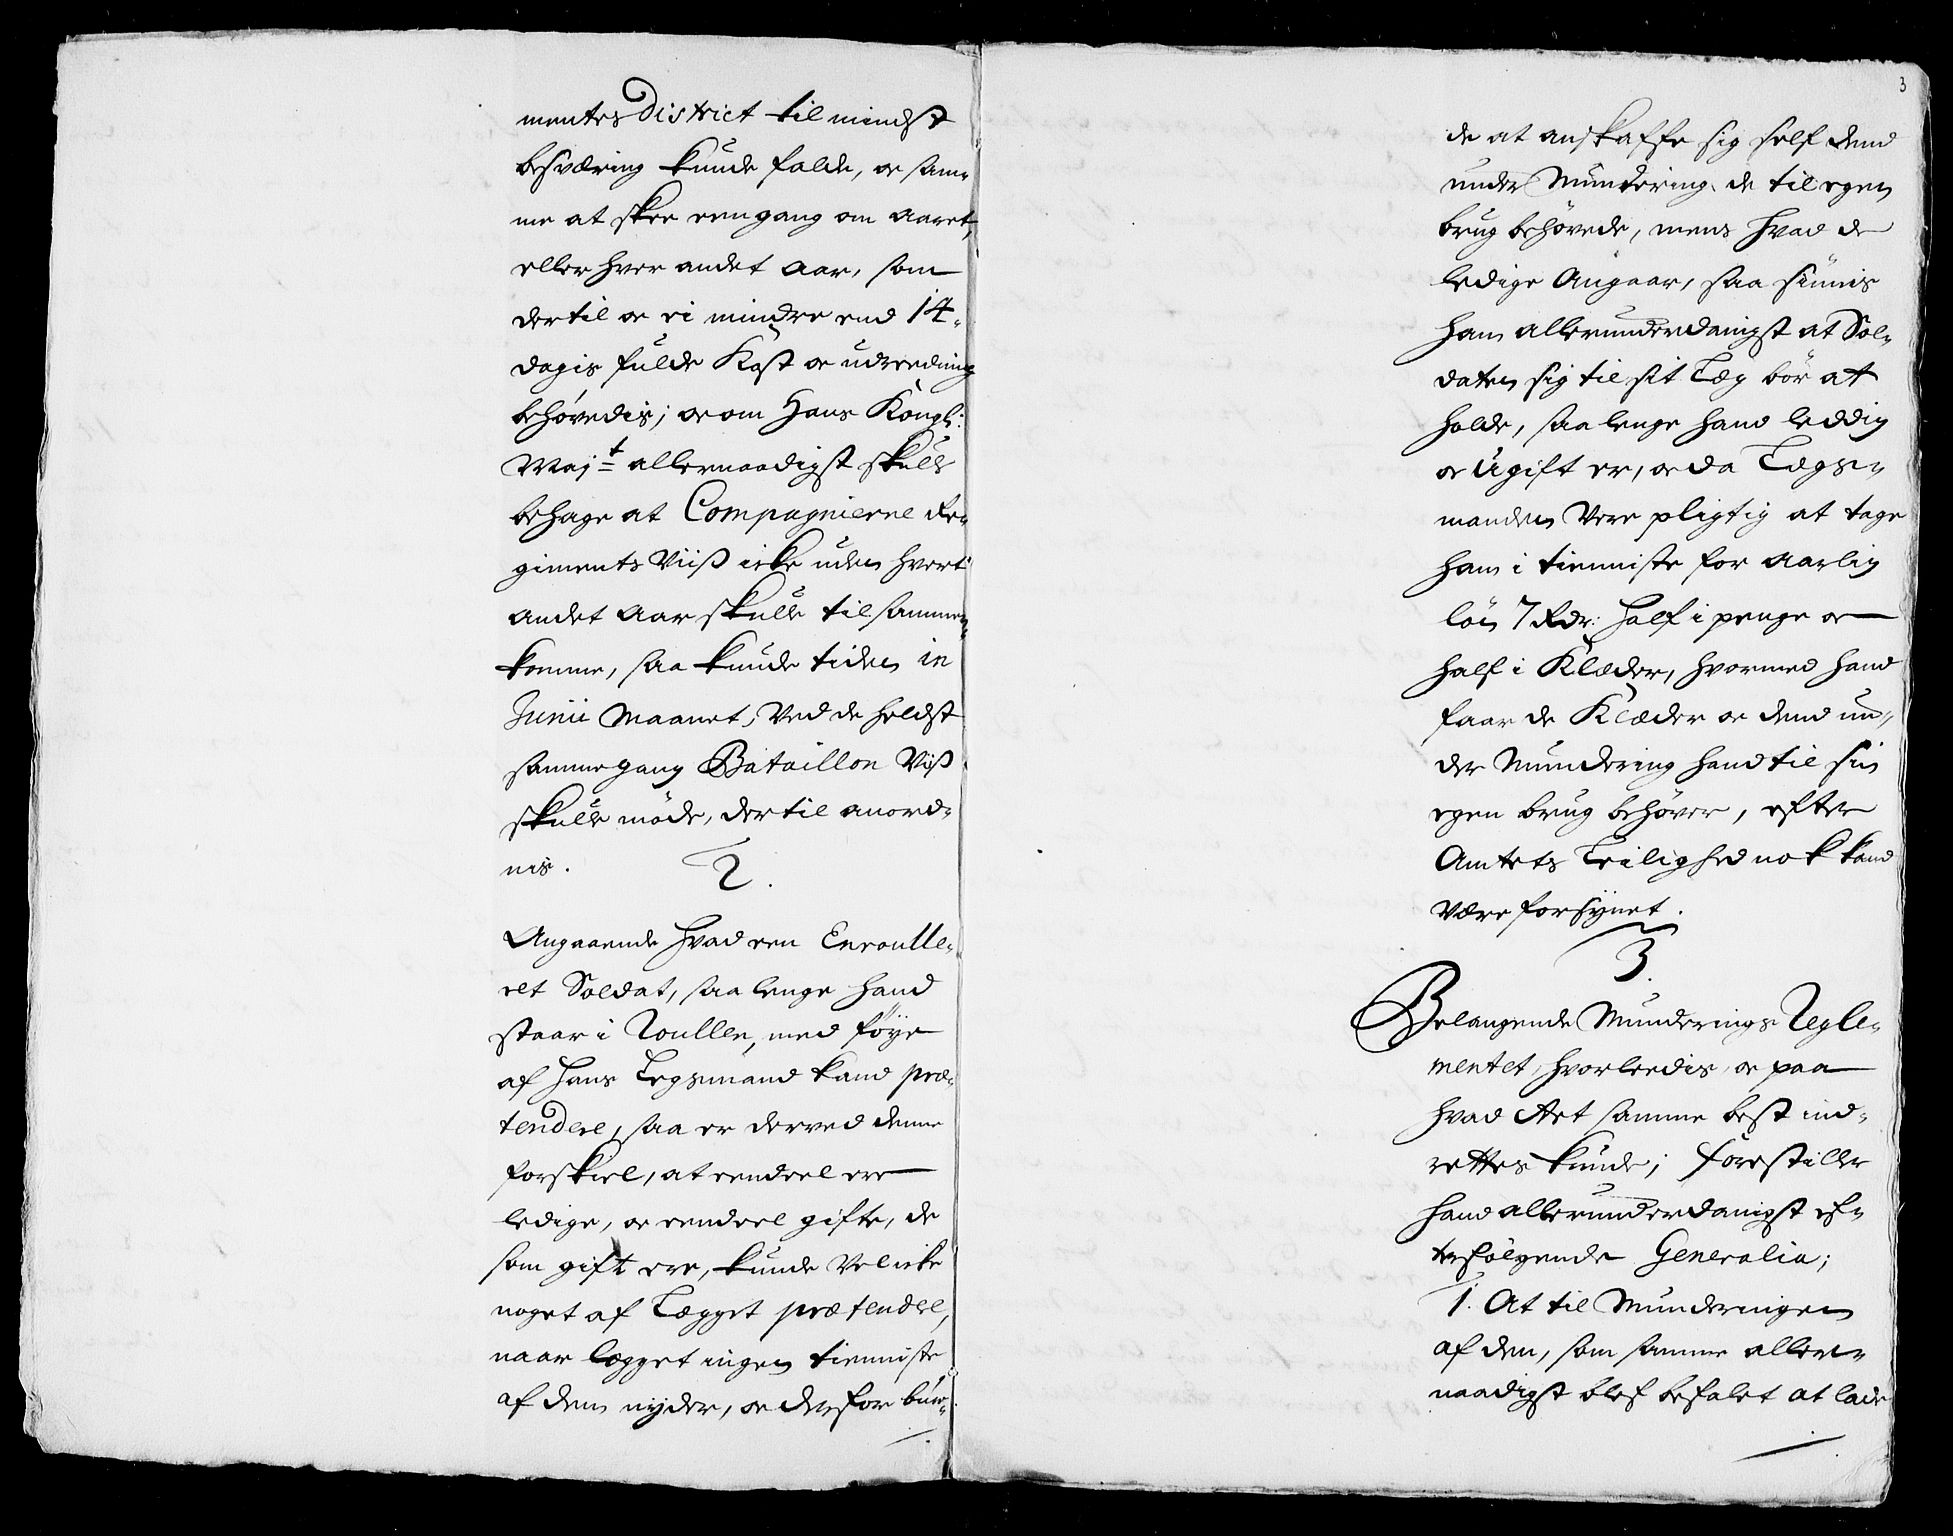 mentes District til mindst
besværing kunde falde, oc sam-
me at skee een gang om aaret,
eller hver andet aar, som
dertil oc ei mindre end 14.
dagis fulde Kost oc udreedning
behövedis; oc om Hans Kongl:
Maj:t allernaadigst skulle
behage at Compagnierne Re-
giments Viiß icke uden hvert
andet aar skulle til sammen-
komme, saa kunde tiden in
Junii Maanet, Ved de heldst
samme gang Bataillon Viß
skulle möde, der til anord-
nis.
2.
Angaaende hvad een Enroulle-
ret Soldat, saa lenge hand
staar i Roullen, med föye
af hans Legsmand kand præ-
tendere, saa er derved denne
forskiel, at eendeel ere
ledige, oc eendeel gifte, de
som gift ere, kunde Vel icke
noget af Legget prætendere,
naar legget ingen tienniste
af dem nyder, oc derfor bur-
3
de at anskaffe sig self dend
under Mundering, de til egen
brug behövede, mens hvad de
ledige Angaar, saa siunis
ham allerunderdanigst at Sol-
daten sig til sit Leg bör at
holde, saa lenge hand leddig
oc Ugift er, oc da Legs-
manden Vere pligtig at tage
ham i tienniste for aarlig
lön 7 Rdr: half i penge oc
half i Klæder, hvormed hand
faar de Klæder oc dend un-
der Mundering hand til sin
egen brug behöver, efter
Amtets Leilighed nok kand
være forsynet.
3.
Belangende Munderings Regle-
mentet, hvorleedis, oc paa
hvad Art samme best ind-
rettes kunde; forestiller
hand allerunderdanigst ef-
terfölgende Generalia;
1. At til Munderingen
af den, som samme aller-
naadigst blef befalet at lade